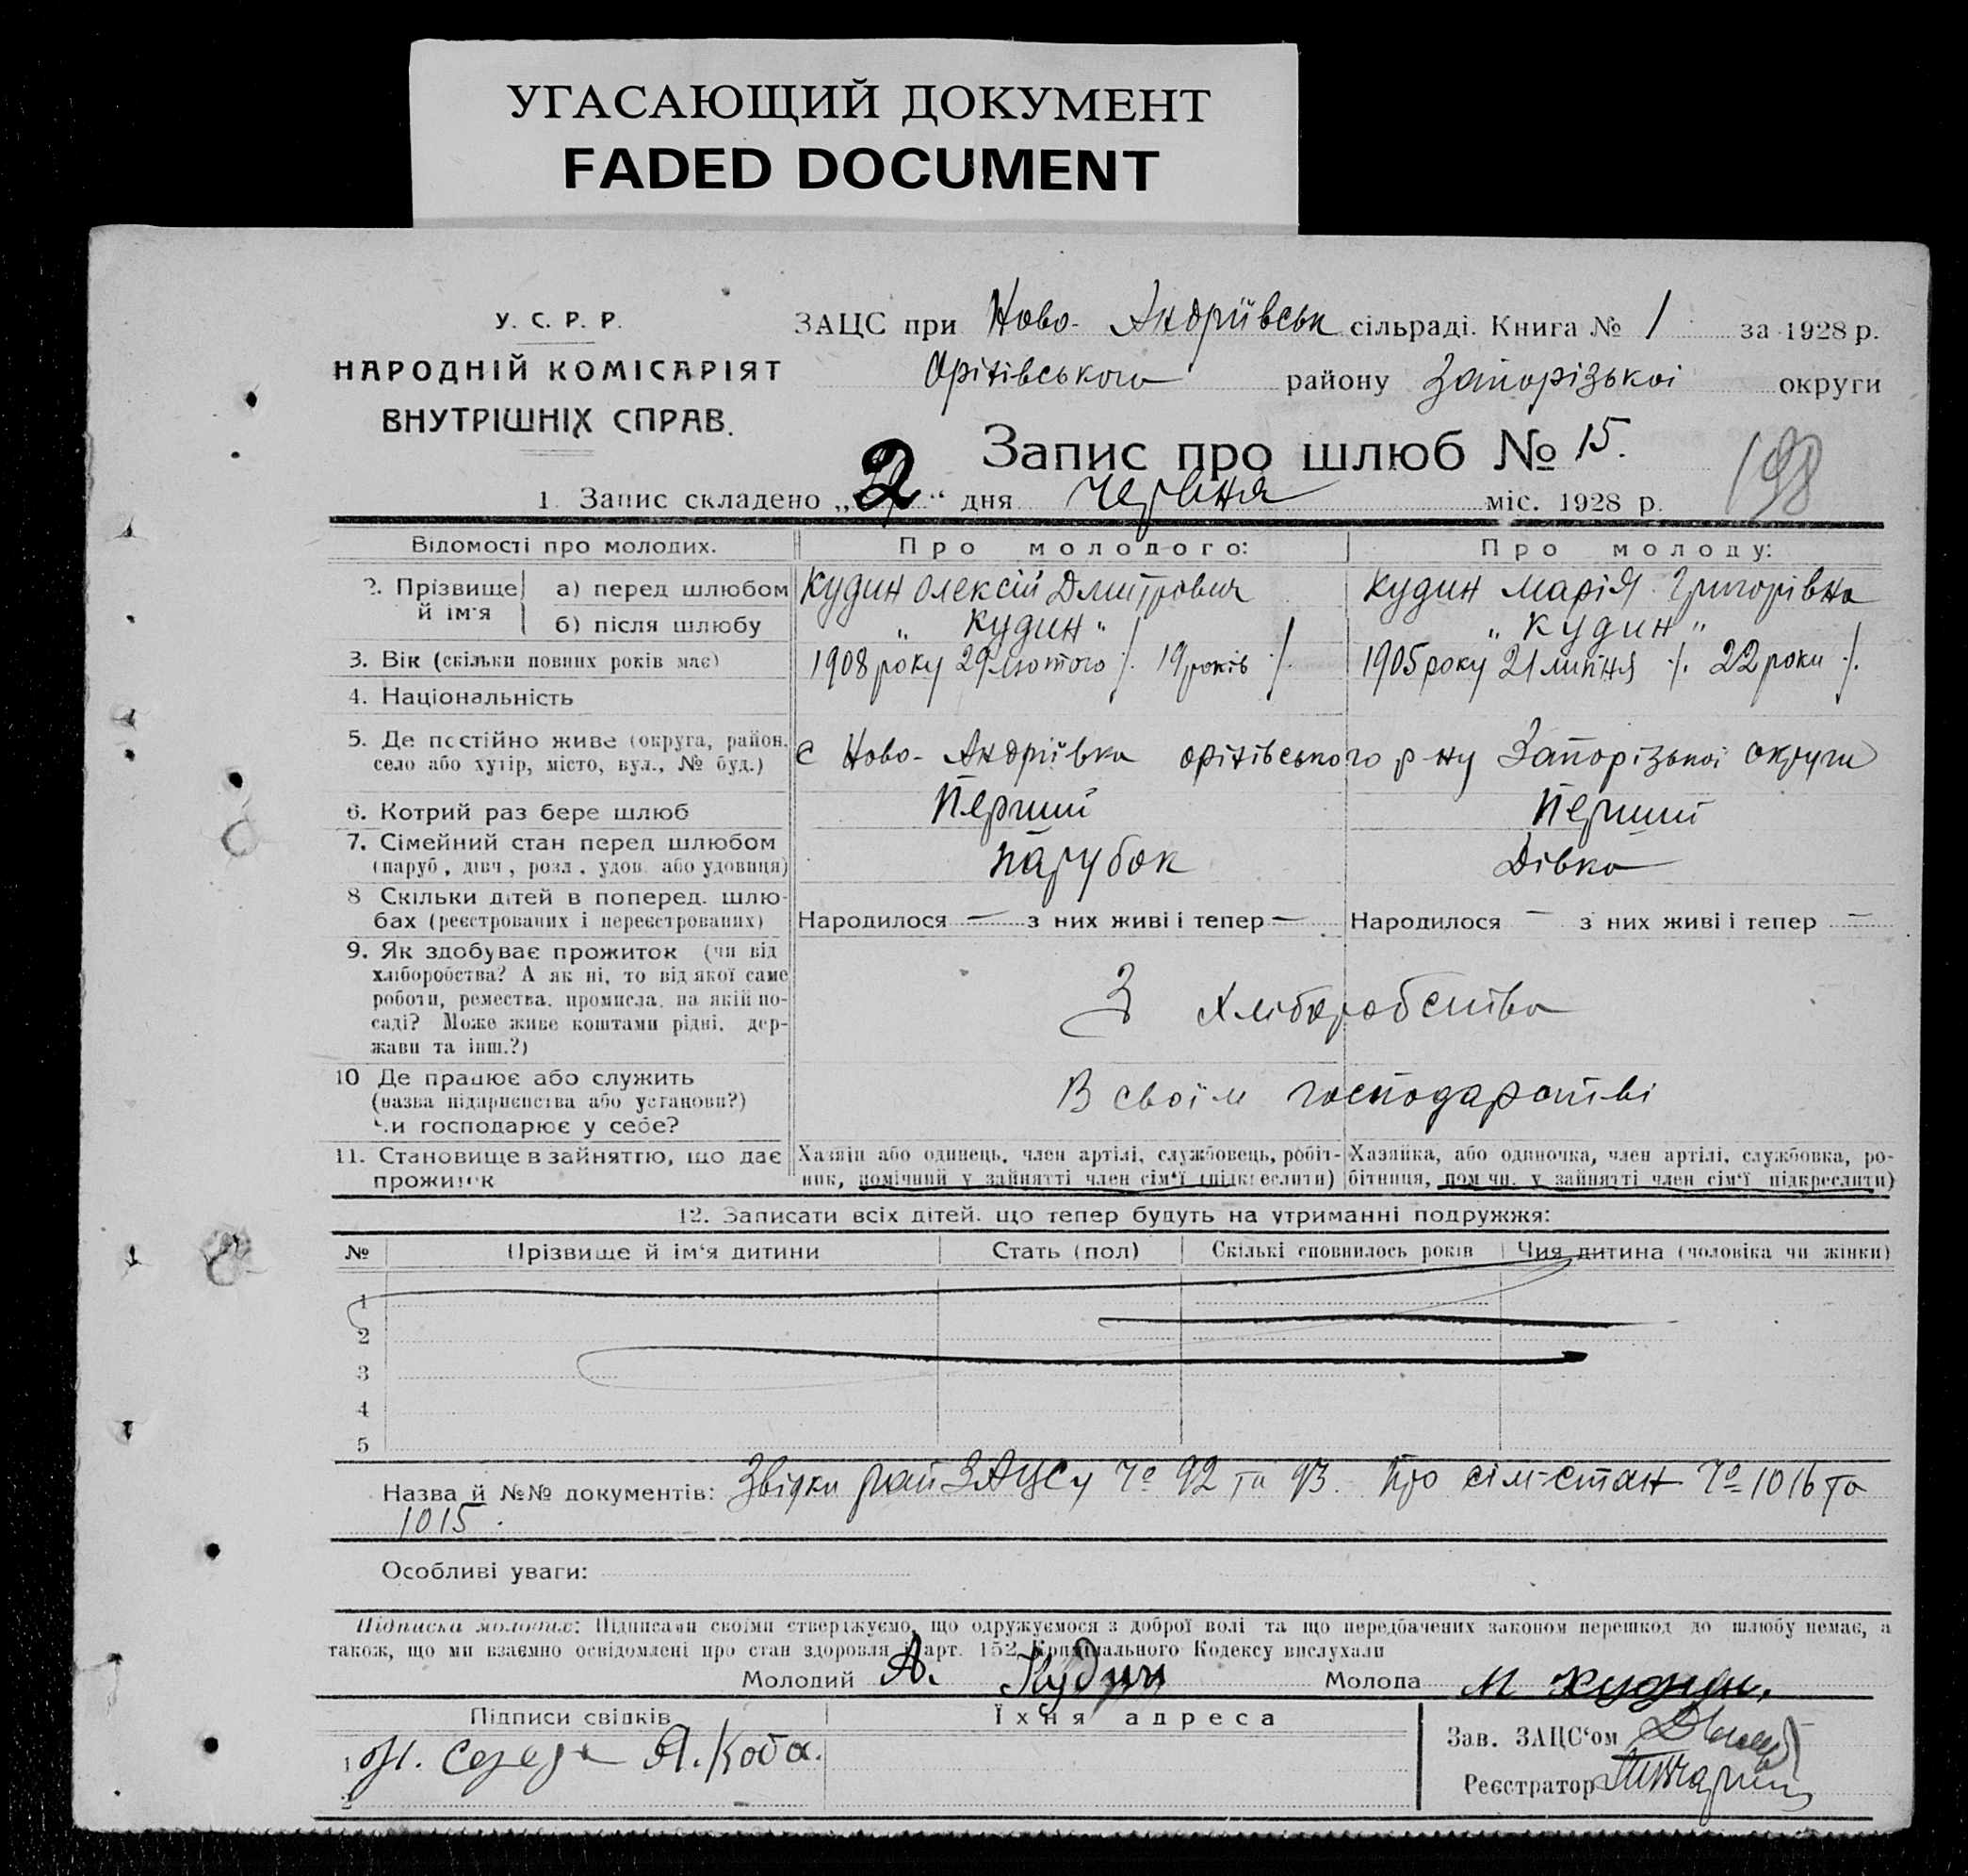 УГАСАЮЩИЙ ДОКУМЕНТ
FADED DOCUMENT
У. С. Р. Р.
НАРОДНІЙ КОМІСАРІЯТ
ВНУТРІШНІХ СПРАВ.
ЗАЦС при Ново-Андріївськ сільраді. Книга № 1 за 1928 р.
Оріхівського району Запорізької округи
Запис про шлюб № 15.
198
1. Запис складено „2“ дня червня міс. 1928 р.
Відомості про молодих. Про молодого: Про молоду:
2. Прізвище й ім'я
а) перед шлюбом Кудин Олексій Дмитрович Кудин Марія Григорівна
б) після шлюбу „Кудин“ „Кудин“
3. Вік (скільки повних років має) 1908 року 29 лютого /. 19 років /. 1905 року 21 липня /. 22 роки /.
4. Національність
5. Де постійно живе (округа, район, село або хутір, місто, вул., № буд.) с Ново-Андріївка оріхівського р-ну Запорізької округи
6. Котрий раз бере шлюб Перший Перший
7. Сімейний стан перед шлюбом Парубок Дівка
(паруб., дівч., розл., удов. або удовиця)
8 Скільки дітей в поперед. шлю-
бах (реєстрованих і нереєстрованих) Народилося — з них живі і тепер — Народилося — з них живі і тепер —
9. Як здобуває прожиток (чи від
хліборобства? А як ні, то від якої саме
роботи, ремества, промисла, на якій по-
саді? Може живе коштами рідні, дер-
жави та інш.?)
З хліборобства
10 Де працює або служить
(назва підприємства або установи?)
Чи господарює у себе?
В своїм господарстві
11. Становище в зайняттю, що дає
прожиток
Хазяїн або одинець, член артілі, службовець, робіт-
ник, помічний у зайнятті член сім'ї (підкреслити)
Хазяйка, або одиночка, член артілі, службовка, ро-
бітниця, пом чн. у зайнятті член сім'ї підкреслити)
12. Записати всіх дітей, що тепер будуть на утриманні подружжя:
№ Прізвище й ім'я дитини Стать (пол) Скількі сповнилось років Чия дитина (чоловіка чи жінки)
1
2
3
4
5
Назва й №№ документів: Звідки рай ЗАЦСу № 92 та 93. Про сім-стан № 1016 та
1015.
Особливі уваги:
Підписка молодих: Підписами своїми стверджуємо, що одружуємося з доброї волі та що передбачених законом перешкод до шлюбу немає, а
також, що ми взаємно освідомлені про стан здоровля і арт. 152 Кримінального Кодексу вислухали
Молодий А. Кудин Молода М Кудин.
Підписи свідків Їхня адреса
1 Середа Я. Коба.
2
Зав. ЗАЦС'ом
Реєстратор